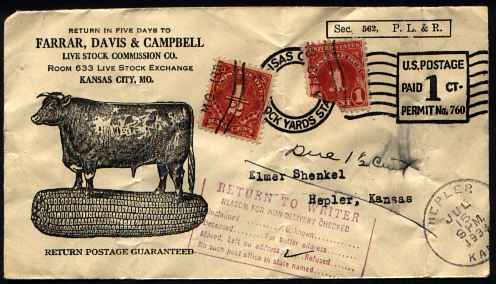 RETURN IN FIVE DAYS TO
FARRAR, DAVIS & CAMPBELL
LIVE STOCK COMMISSION CO.
ROOM 633 LIVE STOCK EXCHANGE
KANSAS CITY, MO.
Sec. 562, P. L. & R.
U.S. POSTAGE
PAID 1 CT.
PERMIT No. 760
STOCK YARDS STA
UNITED STATES
1
Due 1½ Cents
Elmer Shenkel
Hepler, Kansas
RETURN TO WRITER
REASON FOR NON-DELIVERY CHECKED
Unclaimed Unknown
For better address
Moved, Left no address Refused
No such post office in state named
HEPLER
JUL
KA
RETURN POSTAGE GUARANTEED